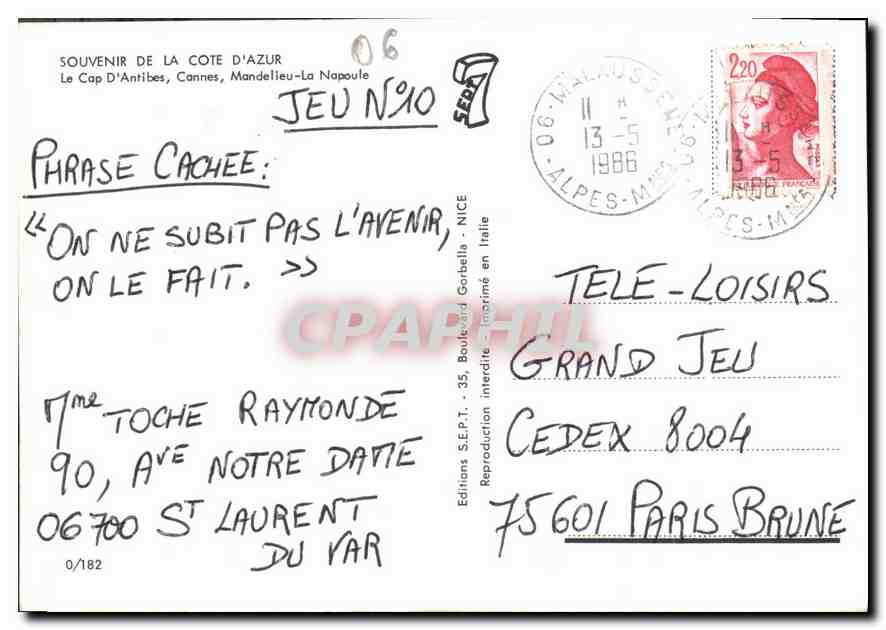 SOUVENIR DE LA COTE D'AZUR
Le Cap D'Antibes, Cannes, Mandelieu-La Napoule
06
JEU N°10
SEPT
PHRASE CACHEE:
« ON NE SUBIT PAS L'AVENIR,
ON LE FAIT. »
Mme TOCHE RAYMONDE
90, AVE NOTRE DAME
06700 ST LAURENT
DU VAR
0/182
Editions S.E.P.T. - 35, Boulevard Gorbella - NICE
Reproduction interdite - Imprimé en Italie
06 - MALAUSSENE
11 H
13 -5
1986
ALPES-Mmes
2,20
11 H
13 -5
1986
06 - ALPES-Mmes
TELE-LOISIRS
GRAND JEU
CEDEX 8004
75601 PARIS BRUNE
CPAPHIL